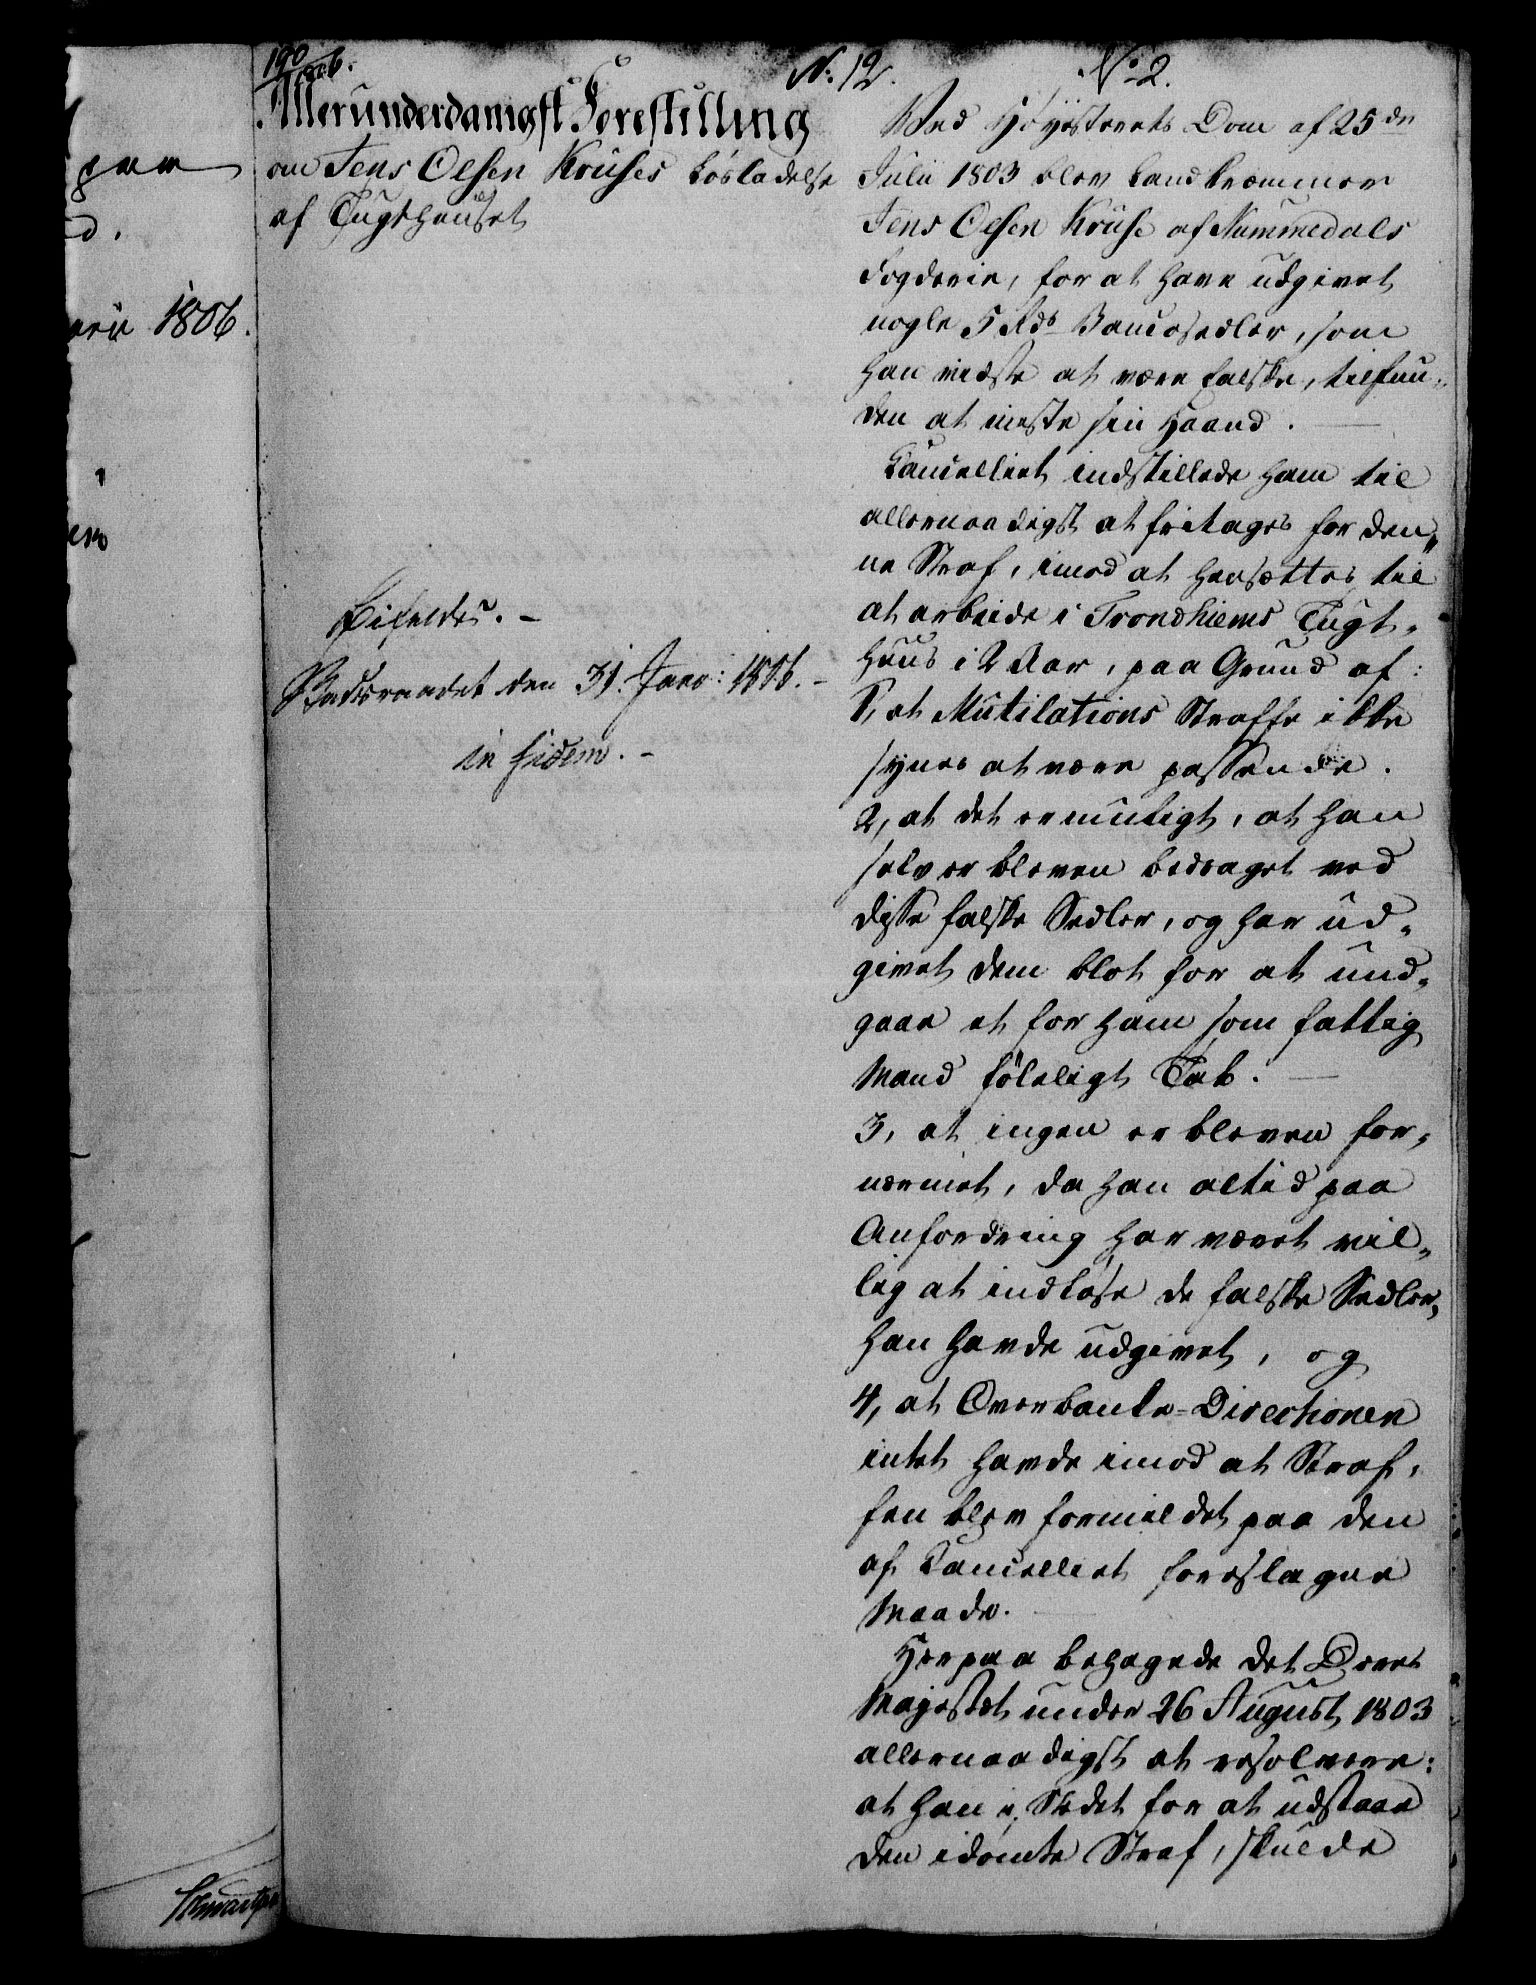 190/1806.
N: 12.
No 2.
Allerunderdanigst Forestilling
om Jens Olsen Kruses Løsladelse
af Tugthuuset
Bifaldes. -
Statsraadet den 31. Janr: 1806. -
in fidem. -
Ved Höyesterets Dom af 25de
Julii 1803 blev Landkræmmer
Jens Olsen Kruse af Nummedals
Fogderie, for at have udgivet
nogle 5 Rds Bancosedler, som
han vidste at være falske, tilfun-
den at miste sin Haand.
Cancelliet indstillede ham til
allernaadigst at fritages for den-
ne Straf, imod at hensættes til
at arbeide i Trondhiems Tugt-
huus i 2 Aar, paa Grund af:
1, at Mutilations Straffe ikke
synes at være passende.
2, at det er muligt, at han
selv er bleven bedraget ved
disse falske Sedler, og har ud-
givet dem blot for at und-
gaae et for ham som fattig
Mand föleligt Tab.
3, at ingen er bleven for-
nærmet, da han altid paa
Anfordring har været vil-
lig at indløse de falske Sedler,
han havde udgivet, og
4, at Overbanke-Directionen
intet havde imod at Straf-
fen blev formildet paa den
af Cancelliet foreslagne
Maade.
Herpaa behagede det Deres
Majestæt under 26 August 1803
allernaadigst at resolvere:
at han i Stedet for at udstaae
den idömte Straf, skulde
1806.